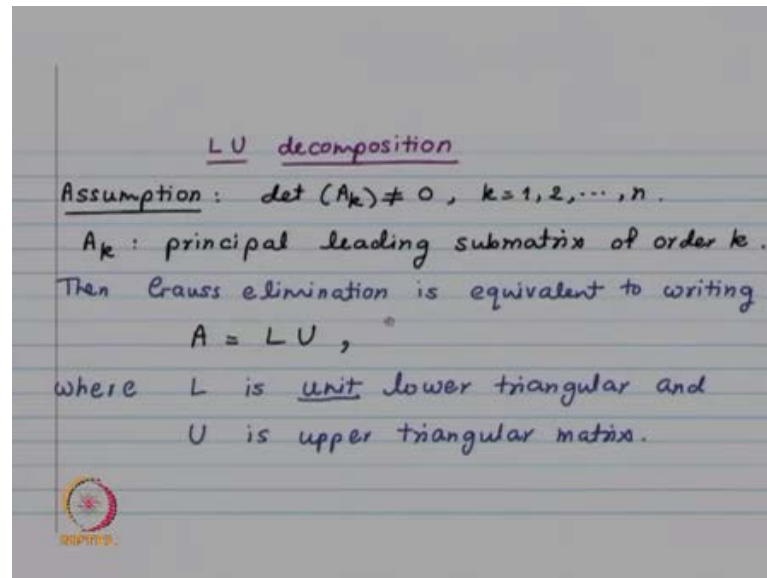 LU decomposition
Assumption : det (Ak) ≠ 0 , k = 1, 2, ⋯, n .
Ak : principal leading submatrix of order k .
Then Gauss elimination is equivalent to writing
A = LU ,
where L is unit lower triangular and
U is upper triangular matrix.